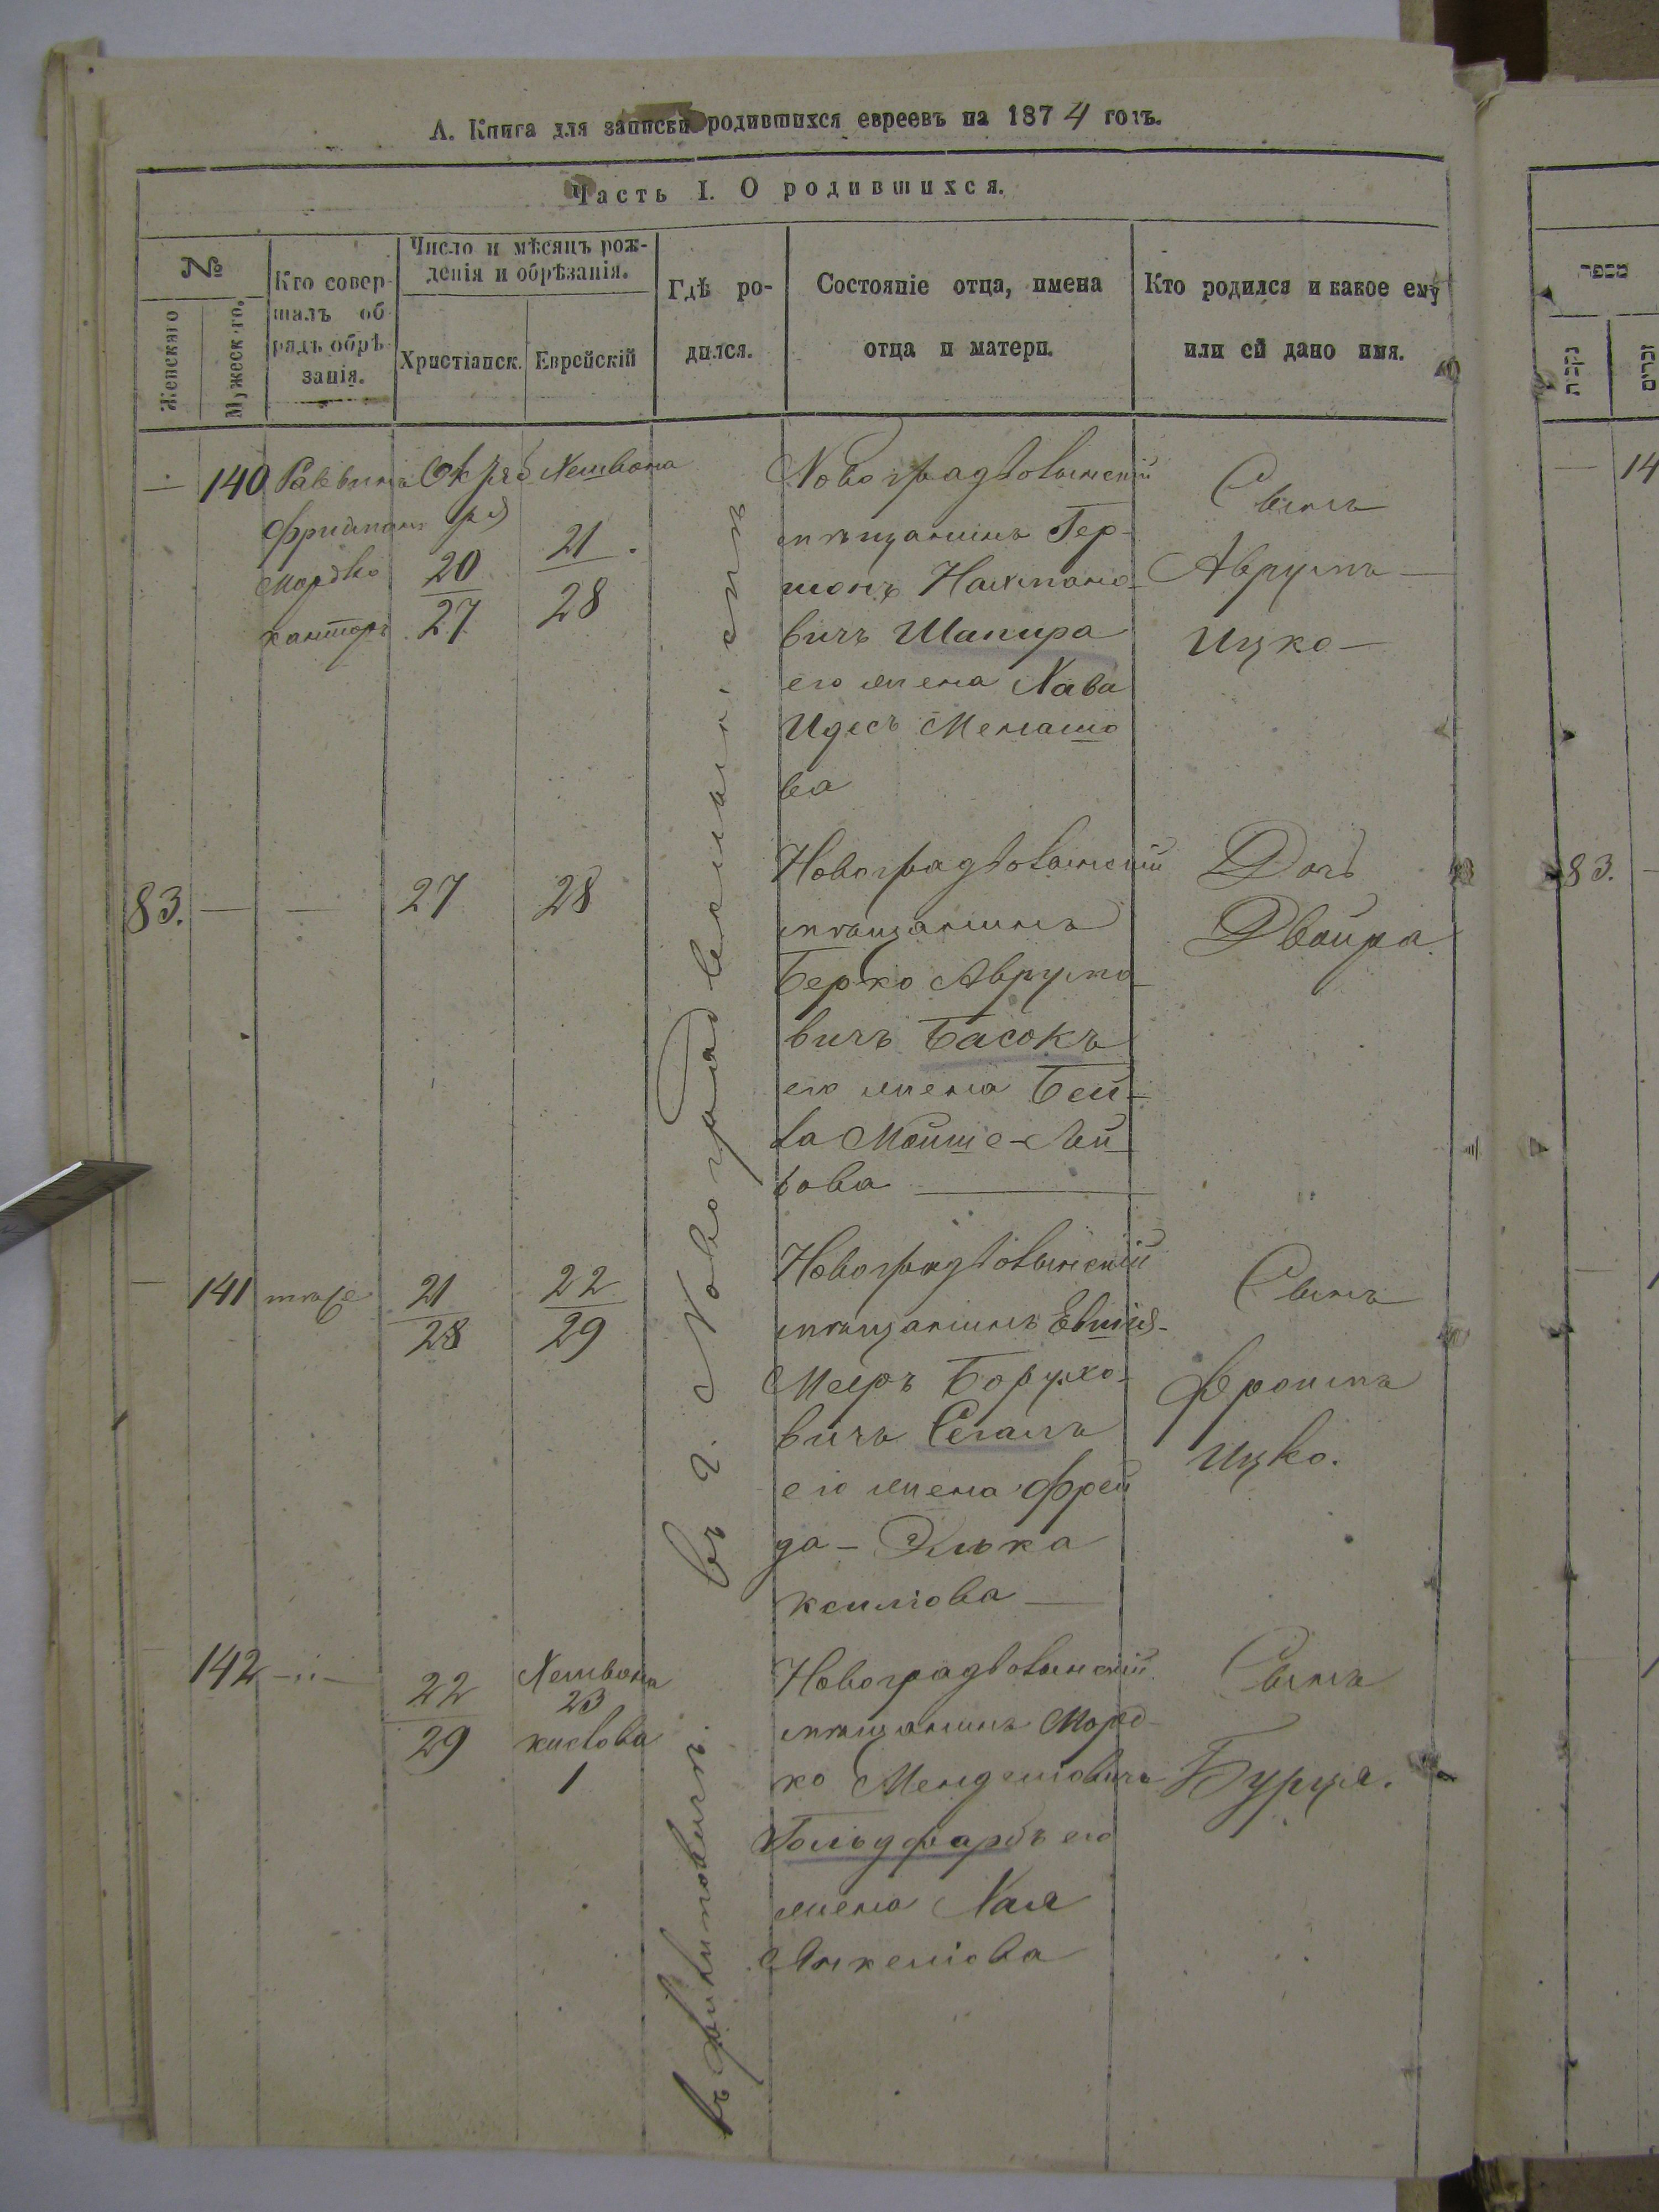 А. Книга для записки родившихся евреевъ на 1874 годъ.
Часть I. О родившихся.
№
Женскаго
Мужеск-го.
Кто совер-
шалъ об-
рядъ обрѣ-
занія.
Число и мѣсяцъ рож-
денія и обрѣзанія.
Христіанск.
Еврейскій
Гдѣ ро-
дился.
Состояніе отца, имена
отца и матери.
Кто родился и какое ему
или ей дано имя.
въ г. Новоградволын
— 140
Раввинъ
Фридманъ
Мордко
канторъ
Октяб
ря
20
27
Хешвона
21
28
Новоградволынскій
мѣщанинъ Гер-
шонъ Нахмано-
вичъ Шапира
его жена Хава
Идесъ Менашо
ва
Сынъ
Аврумъ —
Ицко —
83. — —
27
28
Новоградволынскій
мѣщанинъ
Берко Аврумо-
вичъ Басокъ
его жена Бей-
ла Мойше-Лей
бова
Дочь
Двойра
— 141
тоже
21
28
22
29
Новоградволынскій
мѣщанинъ
Мееръ Борухо-
вичъ Сегалъ
его жена Фрей
да — Элька
Сынъ
Фроимъ
Ицко.
142 —"—
22
29
Хешвона
23
кислова
1
Новоградволынскій
мѣщанинъ Морд-
ко Менделіовичъ
Гольдфарбъ его
жена Хая
Янкеліова
Сынъ
Бурця.
מספר
נקבות
זכרים
14
83.